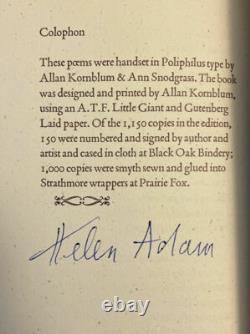 Colophon
These pœms were handset in Poliphilus type by
Allan Kornblum & Ann Snodgrass. The book
was designed and printed by Allan Kornblum,
using an A.T.F. Little Giant and Gutenberg
Laid paper. Of the 1,150 copies in the edition,
150 were numbered and signed by author and
artist and cased in cloth at Black Oak Bindery;
1,000 copies were smyth sewn and glued into
Strathmore wrappers at Prairie Fox.
Helen Adam
© 122